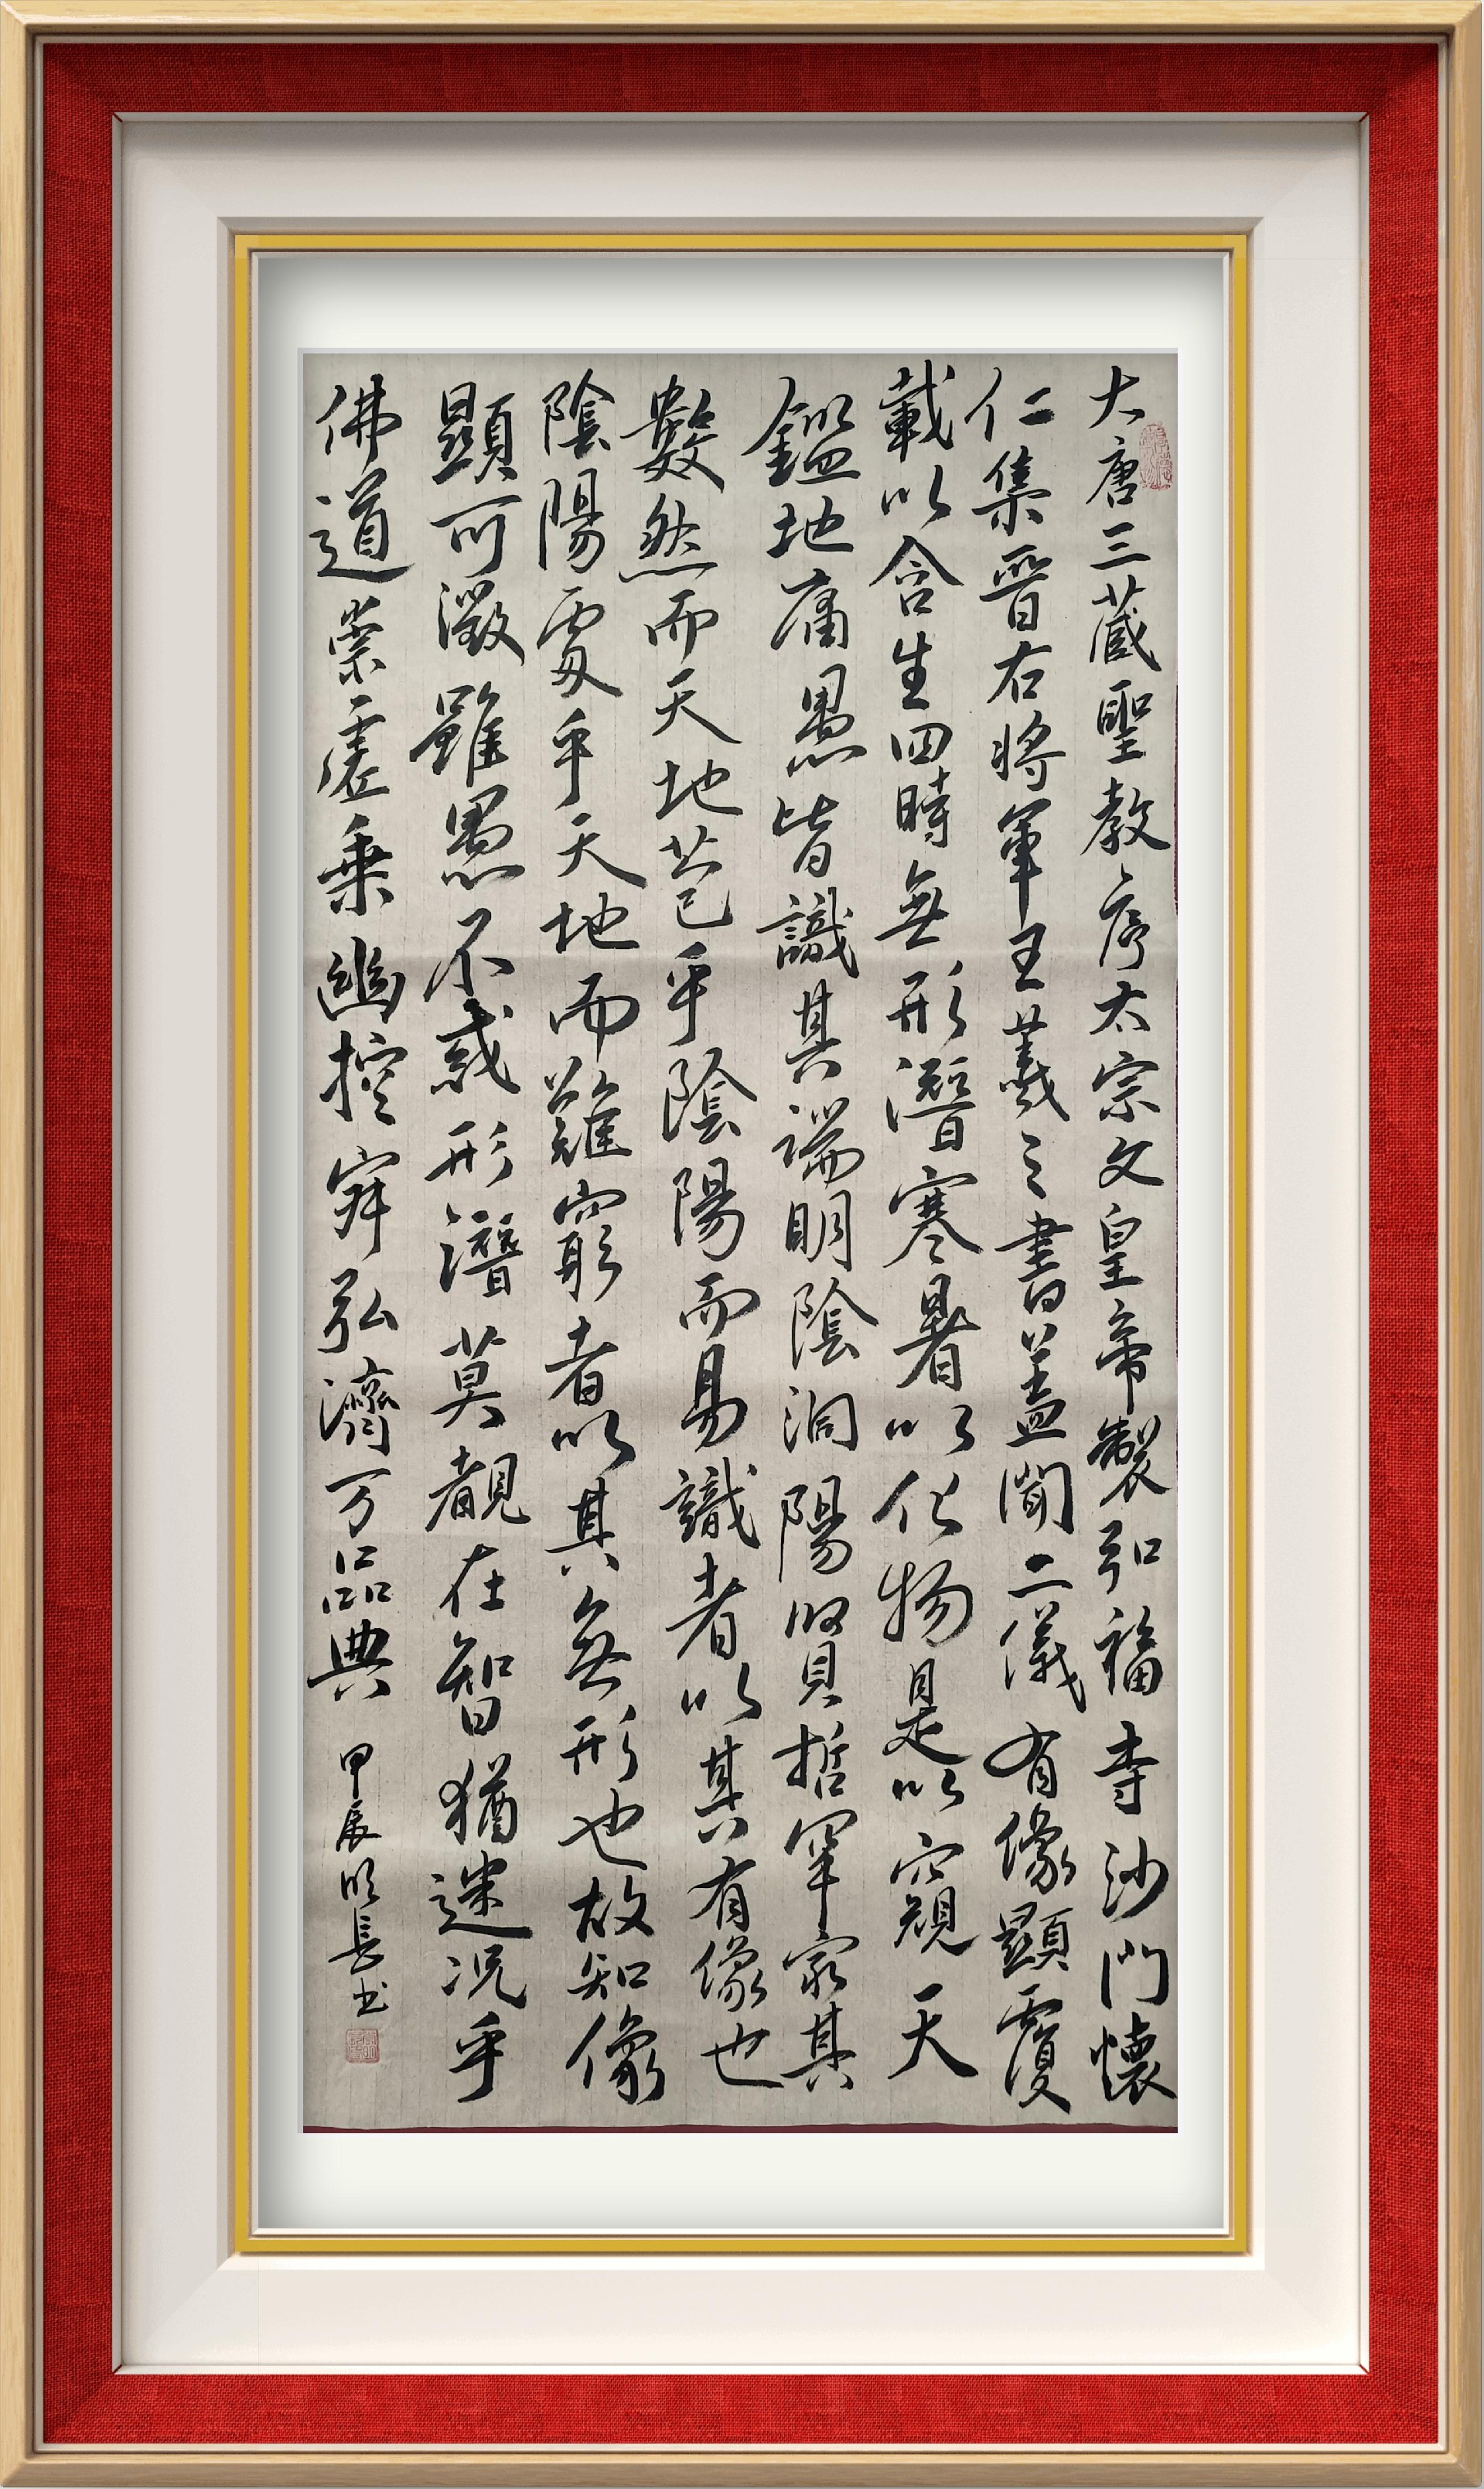 大唐三藏聖教序太宗文皇帝製弘福寺沙門懷
仁集晉右將軍王羲之書蓋聞二儀有像顯覆
載以含生四時無形潛寒暑以化物是以窺天
鑑地庸愚皆識其端明陰洞陽賢哲罕窮其
數然而天地苞乎陰陽而易識者以其有像也
陰陽處乎天地而難窮者以其無形也故知像
顯可徵雖愚不惑形潛莫覩在智猶迷況乎
佛道崇虛乘幽控寂弘濟万品典
甲辰明長书